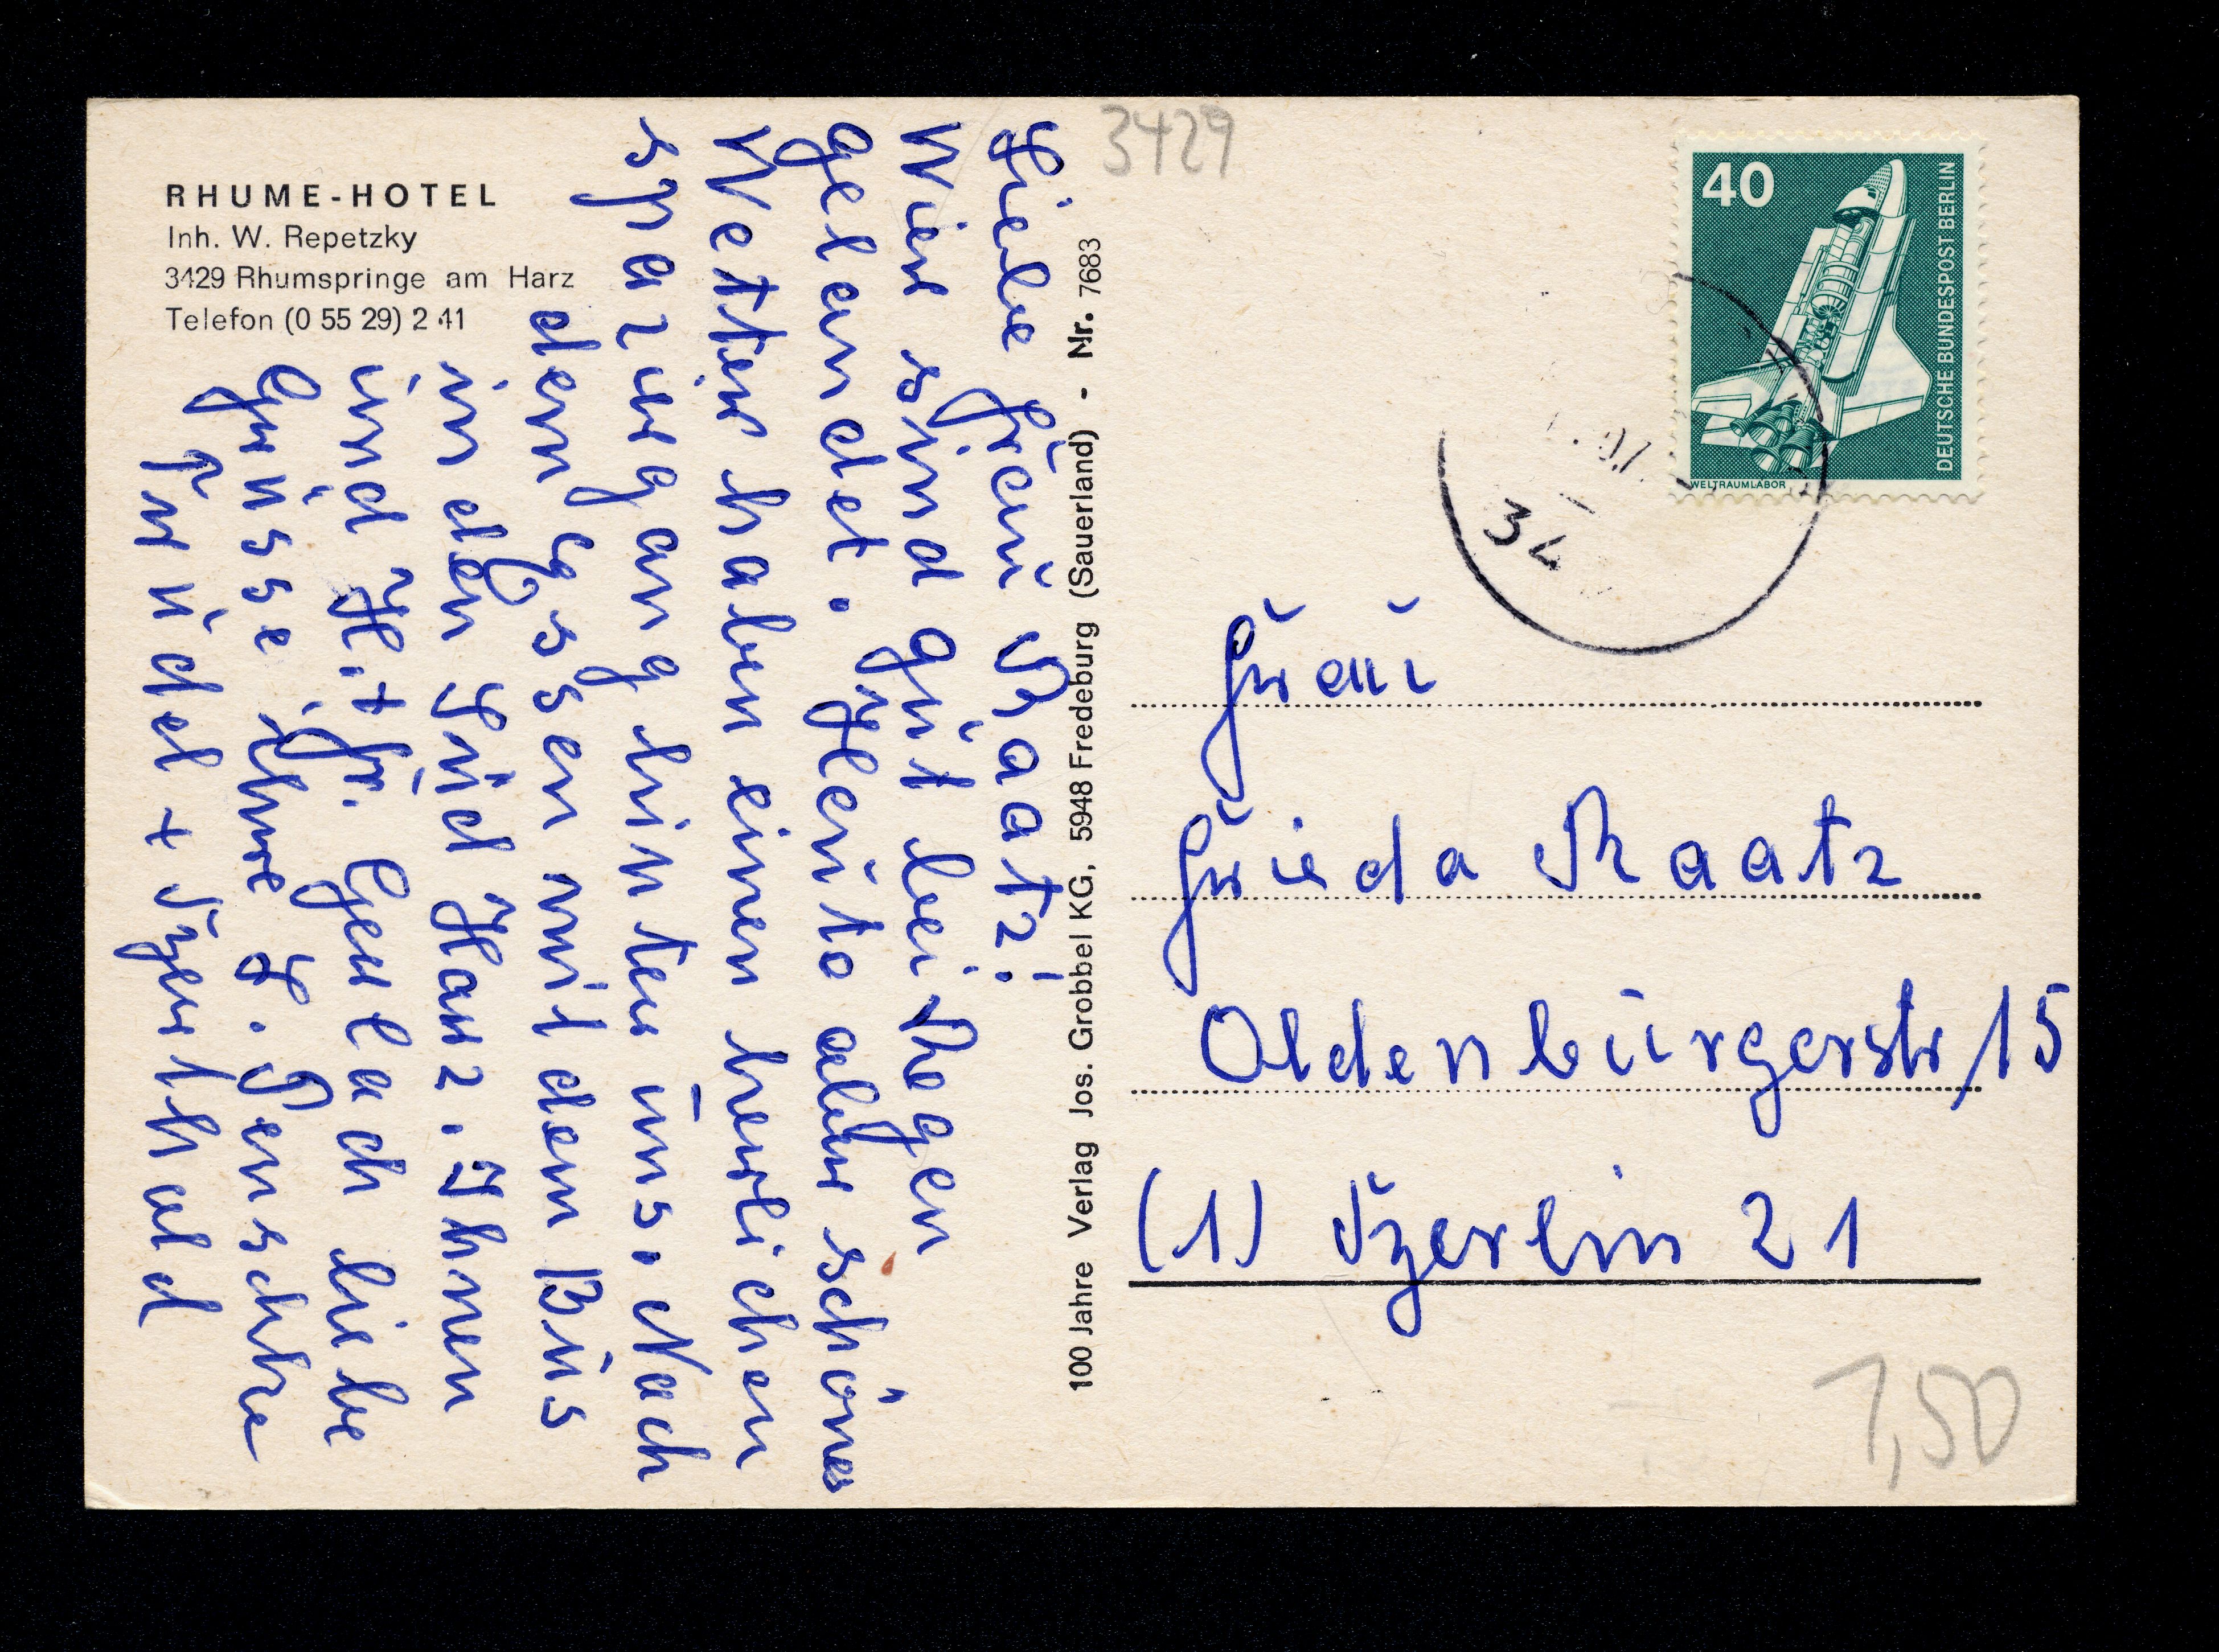 RHUME-HOTEL
Inh. W. Repetzky
3429 Rhumspringe am Harz
Telefon (0 55 29) 2 41
Liebe Frau Raatz!
Wir sind gut bei Regen
gelandet. Heute aber schönes
Wetter haben einen herlichen
spaziergang hinter uns. Nach
dem Essen mit dem Bus
in den Süd Harz. Ihnen
und H. + Fr. Gerlach liebe
Grüsse ihre L. Penschke
Trudel + Berthold
100 Jahre Verlag Jos. Grobbel KG, 5948 Fredeburg (Sauerland) - Nr. 7683
3429
40
DEUTSCHE BUNDESPOST BERLIN
WELTRAUMLABOR
34
Frau
Frieda Raatz
Oldenburgerstr 15
(1) Berlin 21
1,50